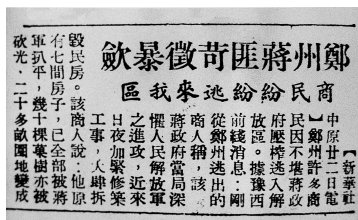 鄭州蔣匪苛徵暴歛
商民紛紛逃來我區
【新華社
中原廿二日電
】鄭州許多商
民因不堪蔣政
府壓榨逃入解
放區。據豫西
前綫消息：剛
從鄭州逃出的
商人稱，該
蔣政府當局深
懼人民解放軍
之進攻，近來
日夜加緊修築
工事，大肆拆
毀民房。該商人說：他原
有七間房子，已全部被蔣
軍扒平，幾十棵菓樹亦被
砍光．二十多畝園地變成